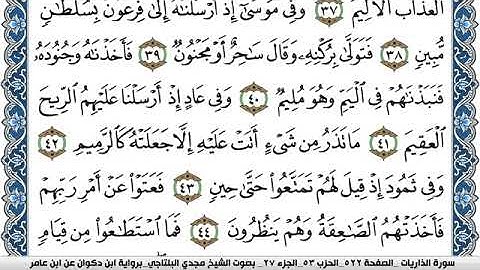 ٱلْعَذَابَ ٱلْأَلِيمَ ٣٧ وَفِي مُوسَىٰٓ إِذْ أَرْسَلْنَٰهُ إِلَىٰ فِرْعَوْنَ بِسُلْطَٰنٍ
مُّبِينٍ ٣٨ فَتَوَلَّىٰ بِرُكْنِهِۦ وَقَالَ سَٰحِرٌ أَوْ مَجْنُونٌ ٣٩ فَأَخَذْنَٰهُ وَجُنُودَهُۥ
فَنَبَذْنَٰهُمْ فِي ٱلْيَمِّ وَهُوَ مُلِيمٌ ٤٠ وَفِي عَادٍ إِذْ أَرْسَلْنَا عَلَيْهِمُ ٱلرِّيحَ
ٱلْعَقِيمَ ٤١ مَا تَذَرُ مِن شَيْءٍ أَتَتْ عَلَيْهِ إِلَّا جَعَلَتْهُ كَٱلرَّمِيمِ ٤٢
وَفِي ثَمُودَ إِذْ قِيلَ لَهُمْ تَمَتَّعُوا۟ حَتَّىٰ حِينٍ ٤٣ فَعَتَوْا۟ عَنْ أَمْرِ رَبِّهِمْ
فَأَخَذَتْهُمُ ٱلصَّٰعِقَةُ وَهُمْ يَنظُرُونَ ٤٤ فَمَا ٱسْتَطَٰعُوا۟ مِن قِيَامٍ
سورة الذاريات _الصفحة ٥٢٢_ الحزب ٥٣_ الجزء ٢٧_ بصوت الشيخ مجدي البلتاجي_برواية ابن ذكوان عن ابن عامر